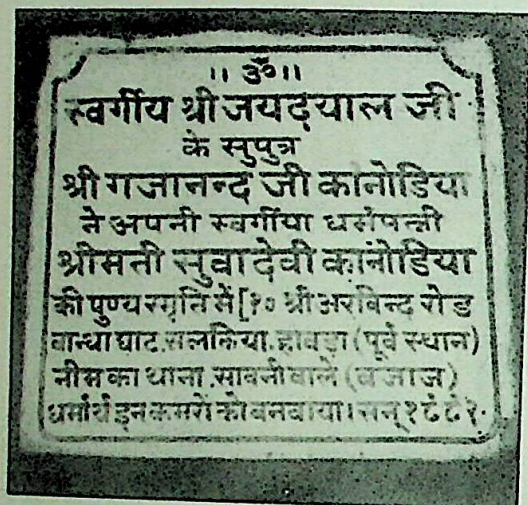 ।। ॐ ।।
स्वर्गीय श्री जयदयाल जी
के सुपुत्र
श्री गजानन्द जी कानोडिया
ने अपनी स्वर्गीया धर्मपत्नी
श्रीमती सुवादेवी कानोडिया
की पुण्य स्मृति में [१० श्री अरबिन्द रोड
बान्धा घाट, सलकिया, हावड़ा (पूर्व स्थान)
नीम का थाना, सावनी वाले (बजाज)
धर्मार्थ इन कमरों को बनवाया। सन्